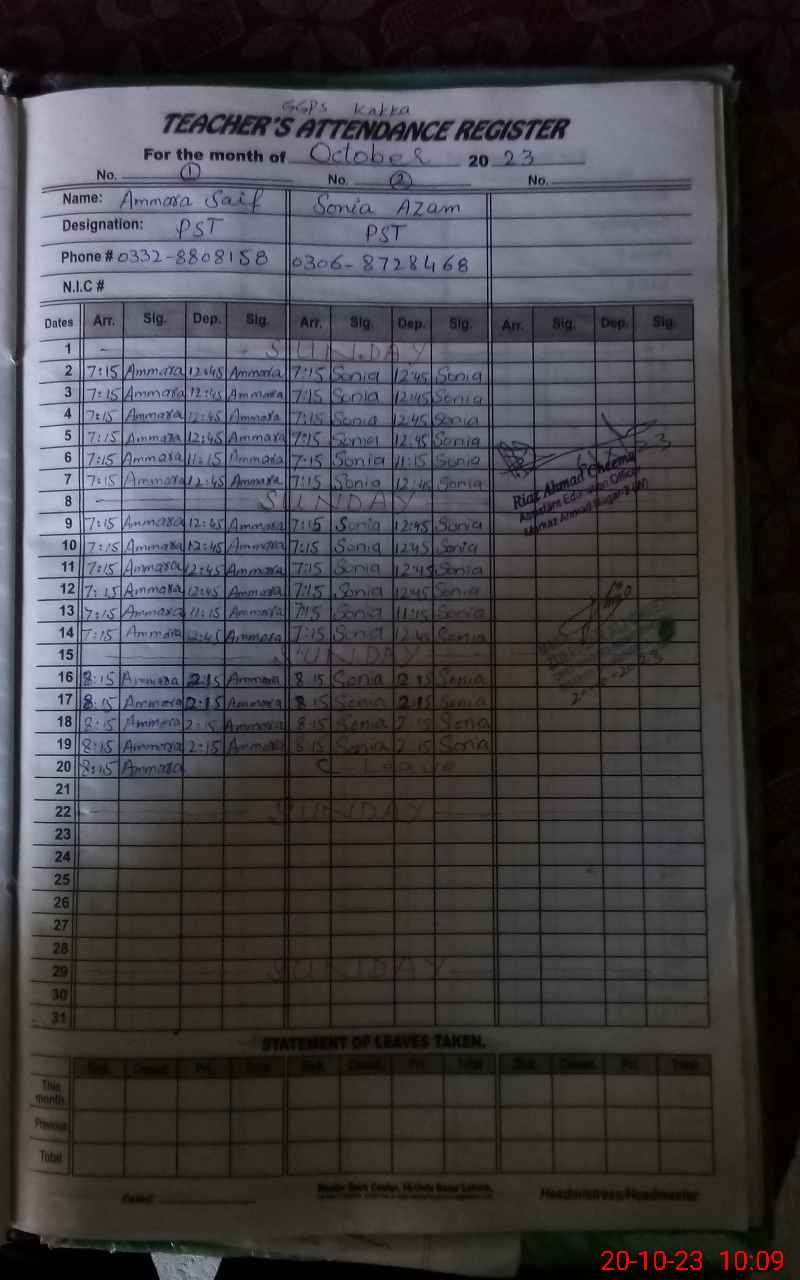 GGPS Kakka
TEACHER'S ATTENDANCE REGISTER
For the month of October 20 23
No. 1 No. 2 No.
Name: Ammara Saif Sonia Azam
Designation: PST PST
Phone # 0332-8808158 0306-8728468
N.I.C #
Dates Arr. Sig. Dep. Sig. Arr. Sig. Dep. Sig. Arr. Sig. Dep. Sig.
1 SUNDAY
2 7:15 Ammara 12:45 Ammara 7:15 Sonia 12:45 Sonia
3 7:15 Ammara 12:45 Ammara 7:15 Sonia 12:45 Sonia
4 7:15 Ammara 12:45 Ammara 7:15 Sonia 12:45 Sonia
5 7:15 Ammara 12:45 Ammara 7:15 Sonia 12:45 Sonia
6 7:15 Ammara 11:15 Ammara 7:15 Sonia 11:15 Sonia
7 7:15 Ammara 12:45 Ammara 7:15 Sonia 12:45 Sonia
Riaz Ahmad Cheema
Assistant Education Officer
8 SUNDAY
9 7:15 Ammara 12:45 Ammara 7:15 Sonia 12:45 Sonia
10 7:15 Ammara 12:45 Ammara 7:15 Sonia 12:45 Sonia
11 7:15 Ammara 12:45 Ammara 7:15 Sonia 12:45 Sonia
12 7:15 Ammara 12:45 Ammara 7:15 Sonia 12:45 Sonia
13 7:15 Ammara 11:15 Ammara 7:15 Sonia 11:15 Sonia
14 7:15 Ammara 12:45 Ammara 7:15 Sonia 12:45 Sonia
15 SUNDAY
16 8:15 Ammara 2:15 Ammara 8:15 Sonia Sonia
17 8:15 Ammara 2:15 Ammara 8:15 Sonia 2:15 Sonia
18 8:15 Ammara 2:15 Ammara 8:15 Sonia 2:15 Sonia
19 8:15 Ammara 2:15 Ammara 8:15 Sonia 2:15 Sonia
20 8:15 Ammara C-Leave
21
22 SUNDAY
23
24
25
26
27
28
29 SUNDAY
30
31
STATEMENT OF LEAVES TAKEN.
Sick. Casual. Pri. Total Sick. Casual. Pri. Total Sick. Casual. Pri. Total
This month.
Previous
Total
Dated:
Headmistress/Headmaster
20-10-23 10:09